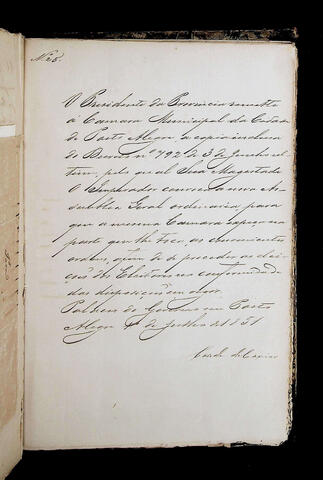 Nº 25.
O Presidente da Provincia remette
á Camara Municipal da Cidade
de Porto Alegre a copia inclusa
do Decreto nº 792 de 3 de Junho ul-
timo, pelo qual Sua Magestade
O Imperador convoca nova As-
semblea Geral ordinaria, para
que a mesma Camara expeça na
parte que lhe toca, as convenientes
ordens, afim de se proceder as elei-
ções dos Eleitores na conformidade
das disposições em vigor.
Palacio do Governo em Porto
Alegre 1º de Julho de 1851
Conde de Caxias